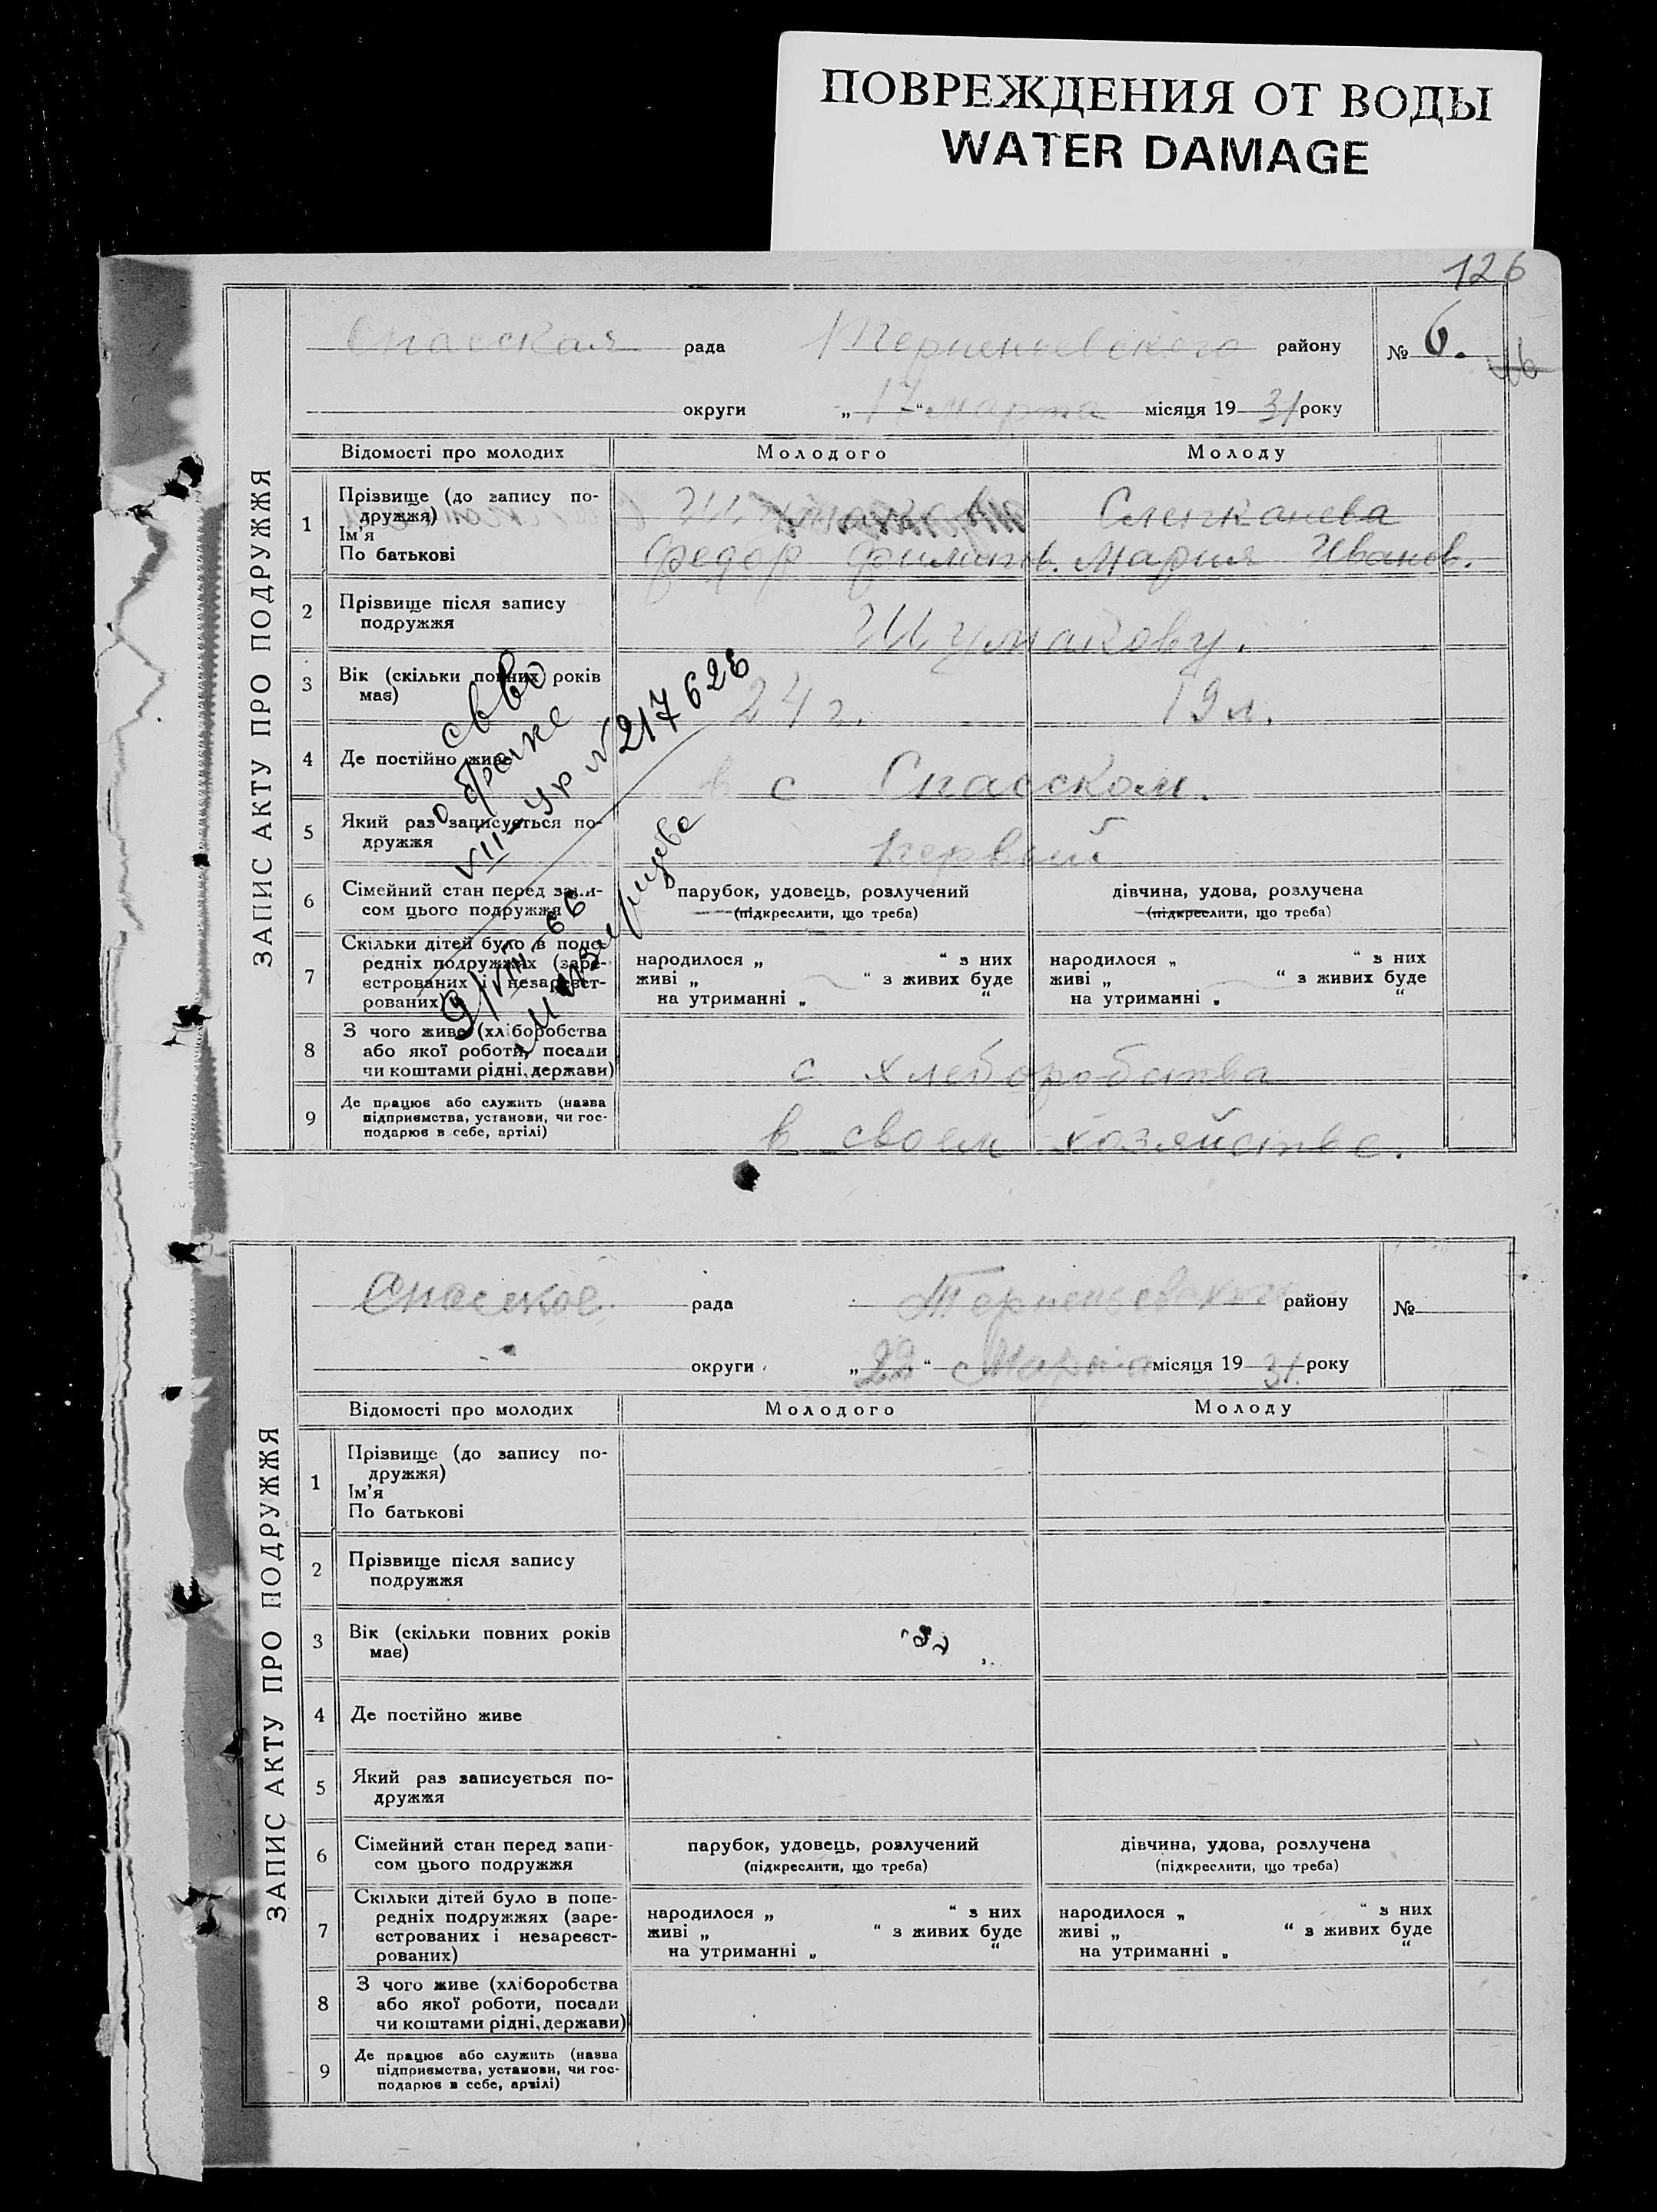 ПОВРЕЖДЕНИЯ ОТ ВОДЫ
WATER DAMAGE
126
ЗАПИС АКТУ ПРО ПОДРУЖЖЯ
Спасская рада Терпеньевского району № 6.
округи „17“ марта місяця 1931 року
Відомості про молодих Молодого Молоду
1 Прізвище (до запису по-
дружжя)
Ім'я
По батькові
Федор Филипов. Мария Иванов.
2 Прізвище після запису
подружжя
Шумакову.
3 Вік (скільки повних років
має)
24 г. 19 л.
4 Де постійно живе
в с Спасском.
5 Який раз записується по-
дружжя
первый
6 Сімейний стан перед запи-
сом цього подружжя
парубок, удовець, розлучений
(підкреслити, що треба)
дівчина, удова, розлучена
(підкреслити, що треба)
7 Скільки дітей було в попе-
редніх подружжях (заре-
єстрованих і незареєст-
рованих)
народилося „ “ з них
живі „ “ з живих буде
на утриманні „ “
народилося „ “ з них
живі „ “ з живих буде
на утриманні „ “
8 З чого живе (хліборобства
або якої роботи, посади
чи коштами рідні, держави)
с хлеборобства
9 Де працює або служить (назва
підприємства, установи, чи гос-
подарює в себе, артілі)
в своем хозяйстве.
св во
о браке
VIII-Ур № 217628
9/VIII-66
ЗАПИС АКТУ ПРО ПОДРУЖЖЯ
Спасское рада Терпеньевского району №
округи „22“ Марта місяця 1931 року
Відомості про молодих Молодого Молоду
1 Прізвище (до запису по-
дружжя)
Ім'я
По батькові
2 Прізвище після запису
подружжя
3 Вік (скільки повних років
має)
4 Де постійно живе
5 Який раз записується по-
дружжя
6 Сімейний стан перед запи-
сом цього подружжя
парубок, удовець, розлучений
(підкреслити, що треба)
дівчина, удова, розлучена
(підкреслити, що треба)
7 Скільки дітей було в попе-
редніх подружжях (заре-
єстрованих і незареєст-
рованих)
народилося „ “ з них
живі „ “ з живих буде
на утриманні „ “
народилося „ “ з них
живі „ “ з живих буде
на утриманні „ “
8 З чого живе (хліборобства
або якої роботи, посади
чи коштами рідні, держави)
9 Де працює або служить (назва
підприємства, установи, чи гос-
подарює в себе, артілі)